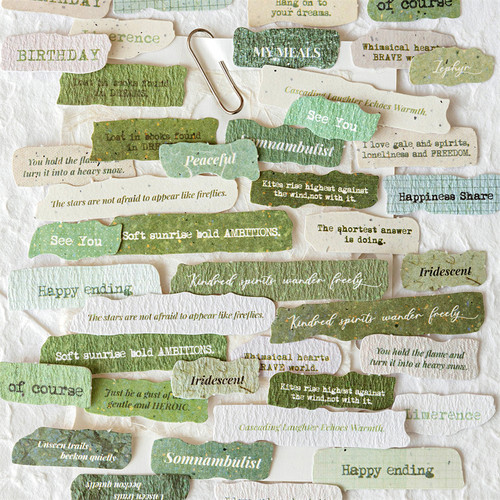 Hang on to
your dreams.
of course
BIRTHDAY
MY MEALS
Whimsical hearts
BRAVE
Zephyr
Lost in books found
in
Cascading Laughter Echoes Warmth.
See You
Lost in books found
in
Somnambulist
I love gale and spirits,
loneliness and FREEDOM.
You hold the flame
turn it into a heavy snow.
Peaceful
The stars are not afraid to appear like fireflies.
Kites rise highest against
the wind,not with it.
Happiness Share
See You
Soft sunrise bold AMBITIONS.
The shortest answer
is doing.
Iridescent
Happy ending
Kindred spirits wander freely
The stars are not afraid to appear like fireflies.
Kindred spirits wander freely
Soft sunrise bold AMBITIONS.
Whimsical hearts
BRAVE world.
You hold the flame and
turn it into a heavy snow.
of course
Iridescent
Just be a gust of
gentle and HEROIC.
Kites rise highest against
the wind,not with it.
Limerence
Cascading Laughter Echoes Warmth.
Unseen trails
beckon quietly.
Somnambulist
Happy ending
Unseen trails
beckon quietly